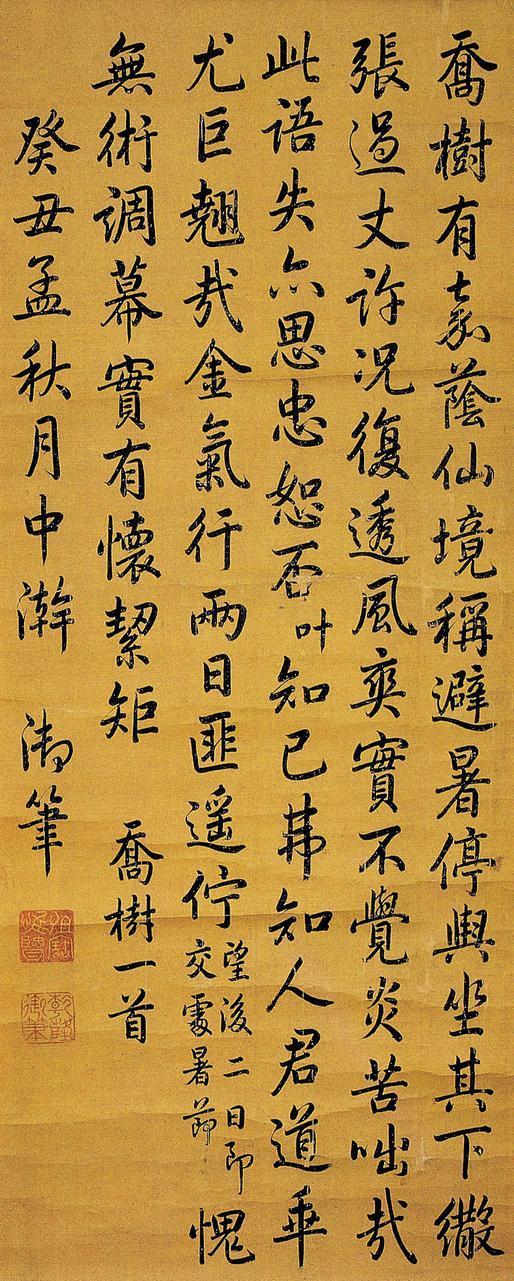 喬樹有嘉蔭仙境稱避暑停輿坐其下繖
張過丈許況復透風爽實不覺炎苦咄哉
此語失亦思忠恕否叶知已弗知人君道乖
尤巨翹哉金氣行兩日匪遥佇望後二日即交處暑節愧
無術調幕實有懷絜矩 喬樹一首
癸丑孟秋月中澣 御筆